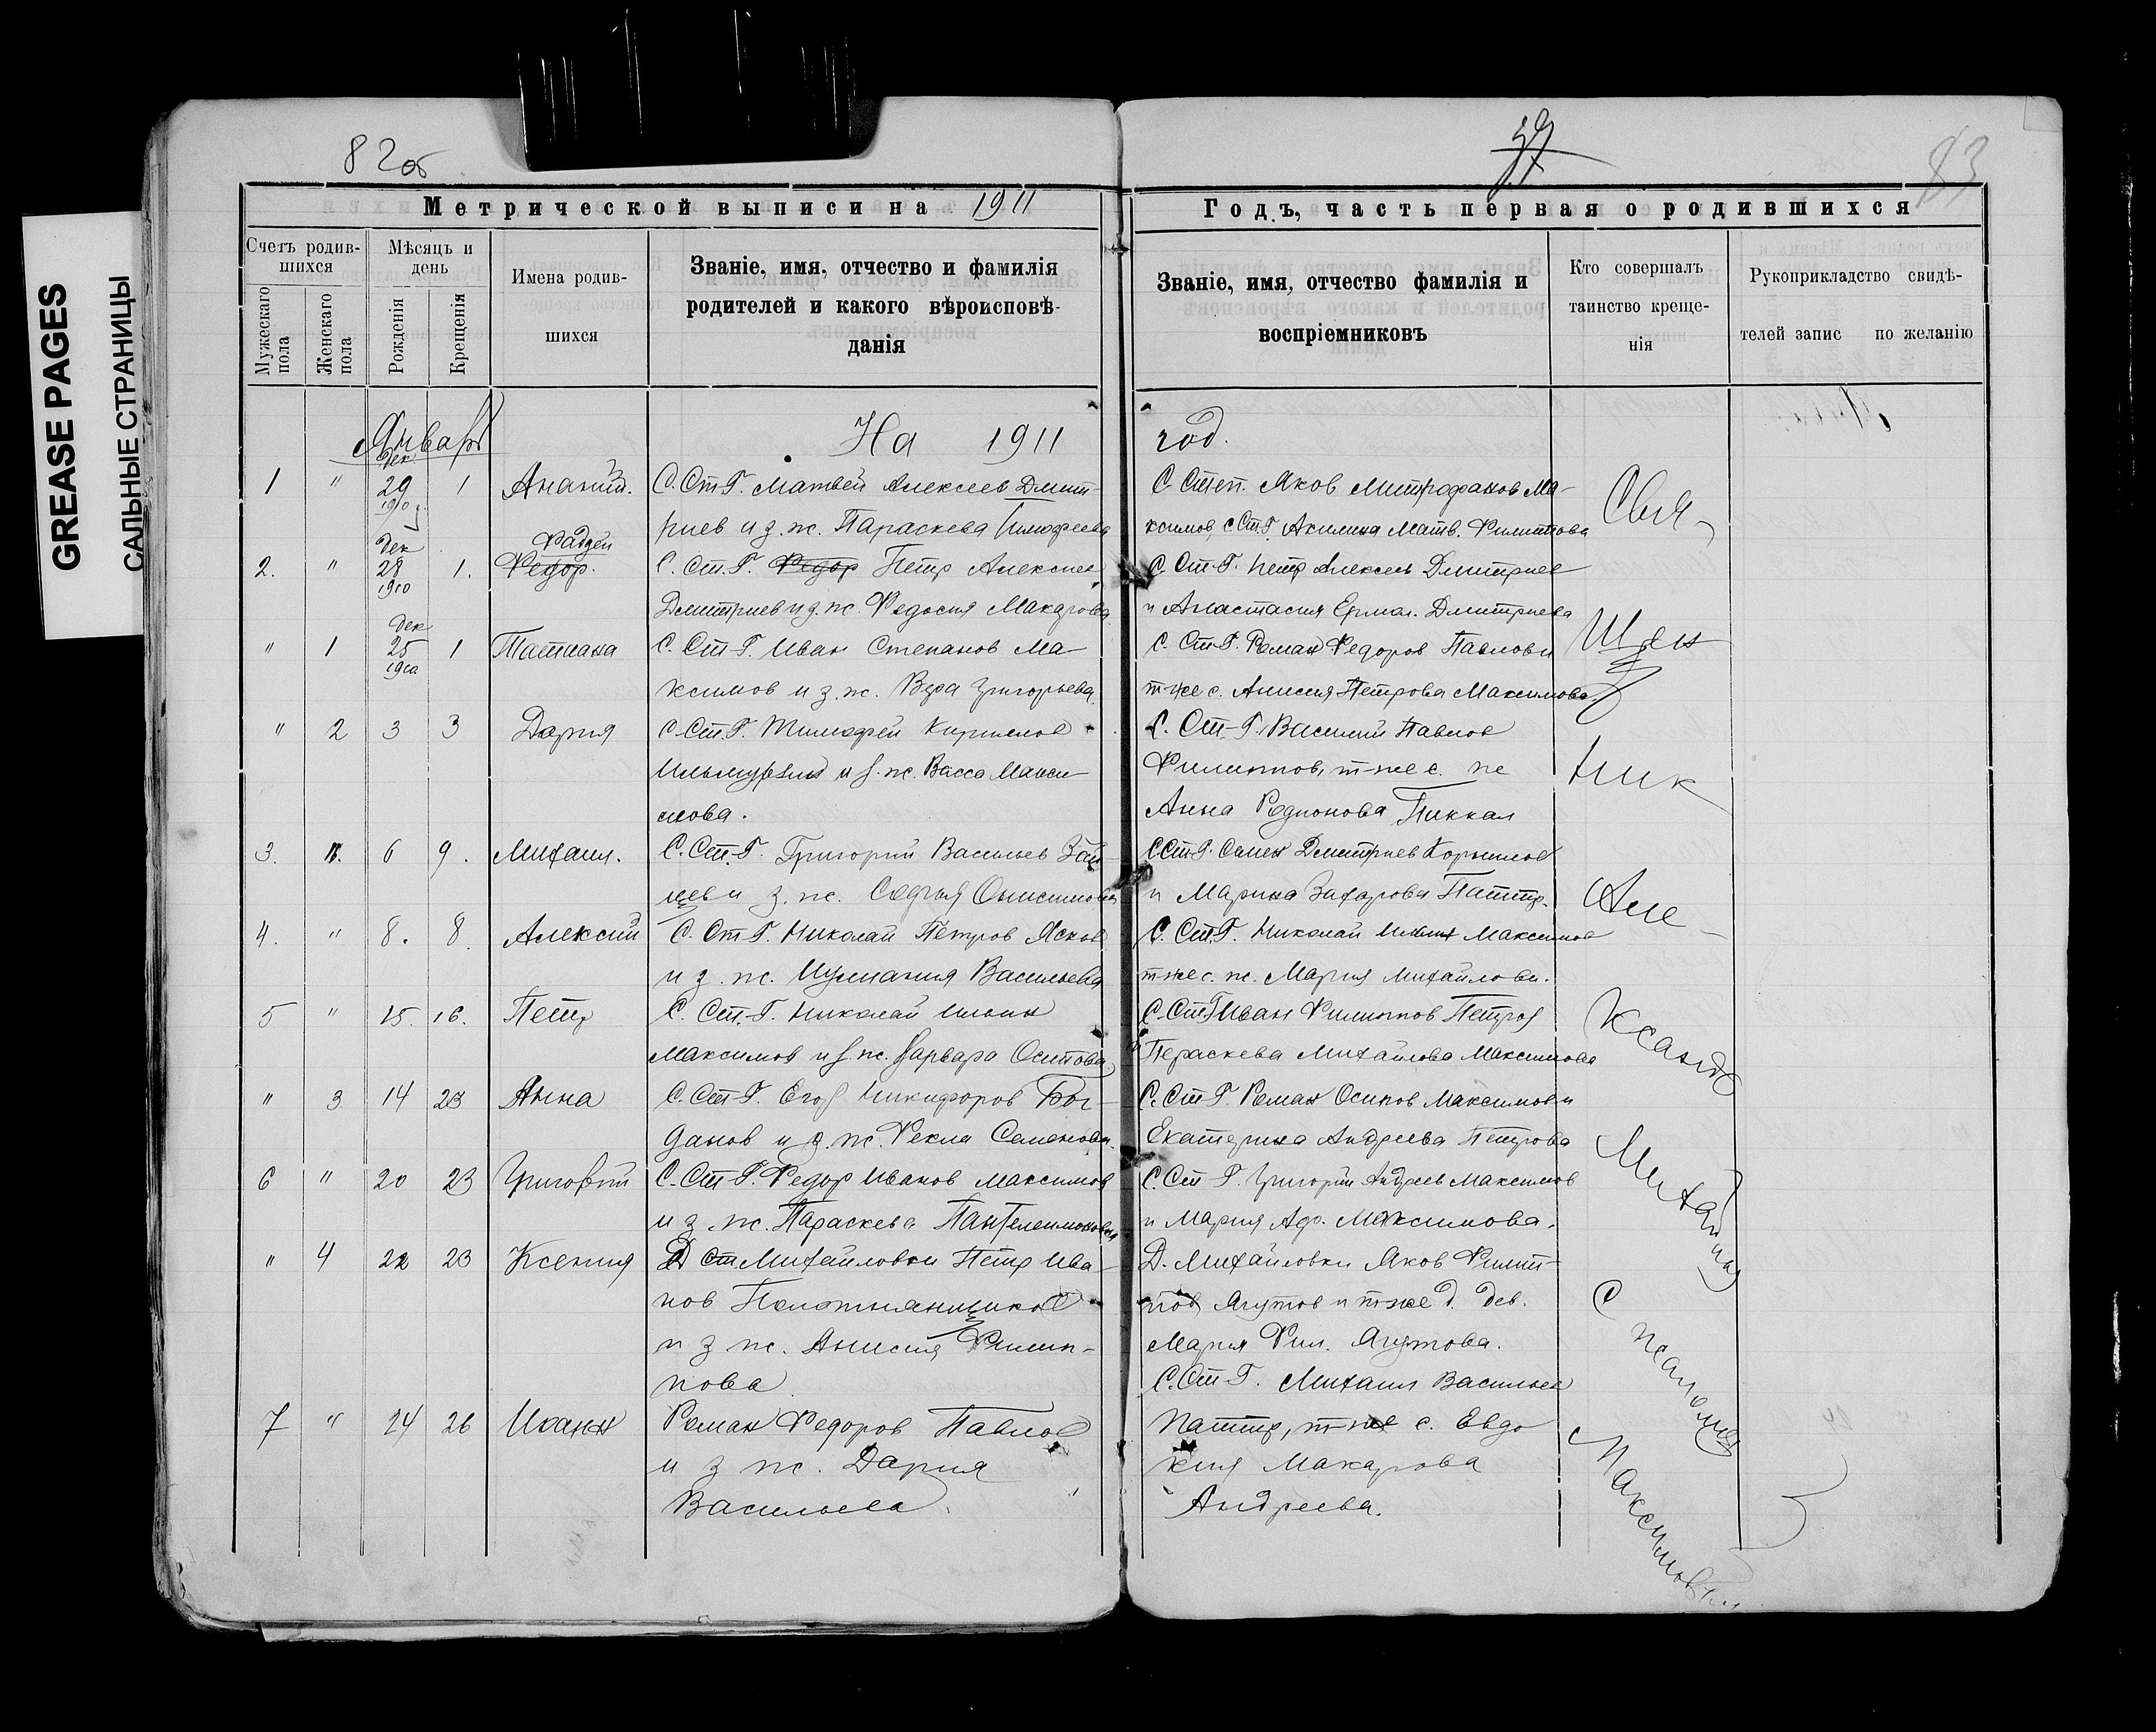 GREASE PAGES
САЛЬНЫЕ СТРАНИЦЫ
82об
83
Метрической выписи на 1911
Годъ, часть первая о родившихся
Счетъ родившихся
Мужескаго пола
Женскаго пола
Мѣсяцъ и день
Рожденія
Крещенія
Имена родившихся
Званіе, имя, отчество и фамилія
родителей и какого вѣроисповѣ-
данія
Званіе, имя, отчество фамилія и
воспріемниковъ
Кто совершалъ
таинство креще-
нія
Рукоприкладство свидѣ-
телей запис по желанію
Январь
На 1911 год.
1 " Дек 29 1910 г. 1 Ананий. С. Ст. Г. Матвей Алексеев Дмит-
риев и з. ж. Параскева Тимофеева
С. Степ. Яков Митрофанов Ма-
ксимов, с Ст. Г. Акилина Матв. Филиппова
2. " Дек 28 1910 1. Фаддей Федор. С. Ст. Г. Федор Петр Алексеев
Дмитриев и з. ж. Федосия Макарова
С. Ст. Г. Петр Алексеев Дмитриев
и Анастасия Ермол. Дмитриева
" 1 Дек 25 1910 1 Татиана С. Ст. Г. Иван Степанов Ма-
ксимов и з. ж. Вера Григорьева
С. Ст. Г. Роман Федоров Павлов и
т-же с. Анисия Петрова Максимова
" 2 3 3 Дария С. Ст. Г. Тимофей Кириллов
и з. ж. Васса Макси-
мова.
С. Ст. Г. Василий Павлов
Филиппов, т-же с. ж
Анна Родионова
3. " 6 9. Михаил. С. Ст. Г. Григорий Васильев Зай-
цев и з. ж. София Онисимова
С. Ст. Г. Семен Дмитриев Корнилов
и Марина Захарова
4. " 8. 8. Алексий С. Ст. Г. Николай Петров Ясков
и з. ж. Иулиания Васильева
С. Ст. Г. Николай Ильин Максимов
т-же с. ж. Мария Михайлова.
5 " 15. 16. Петр С. Ст. Г. Николай Ильин
Максимов и з. ж. Варвара Осипова
С. Ст. Г. Иван Филиппов Петров
и Параскева Михайлова Максимова
" 3 14 23 Анна С. Ст. Г. Егор Никифоров Бог-
данов и з. ж. Фекла Семенова.
С. Ст. Г. Роман Осипов Максимов и
Екатерина Андреева Петрова
6 " 20 23 Григорий С. Ст. Г. Федор Иванов Максимов
и з. ж. Параскева Пантелеимонова
С. Ст. Г. Григорий Андреев Максимов
и Мария Аф. Максимова.
" 4 22 23 Ксения Д Ст Михайловки Петр Ива-
нов Полотнянщиков
и з ж. Анисия Филип-
пова
Д. Михайловки Яков Филип-
пов Ягутов и т-же д. дев.
Мария Фил. Ягутова.
7 " 24 26 Иоанн Роман Федоров Павлов
и з ж. Дария
Васильева
С. Ст. Г. Михаил Васильев
т-же с. Евдо
кия Макарова
Андреева.
Свя-
щен
ник
Але-
ксандр
Михайлов
С
Максимовки